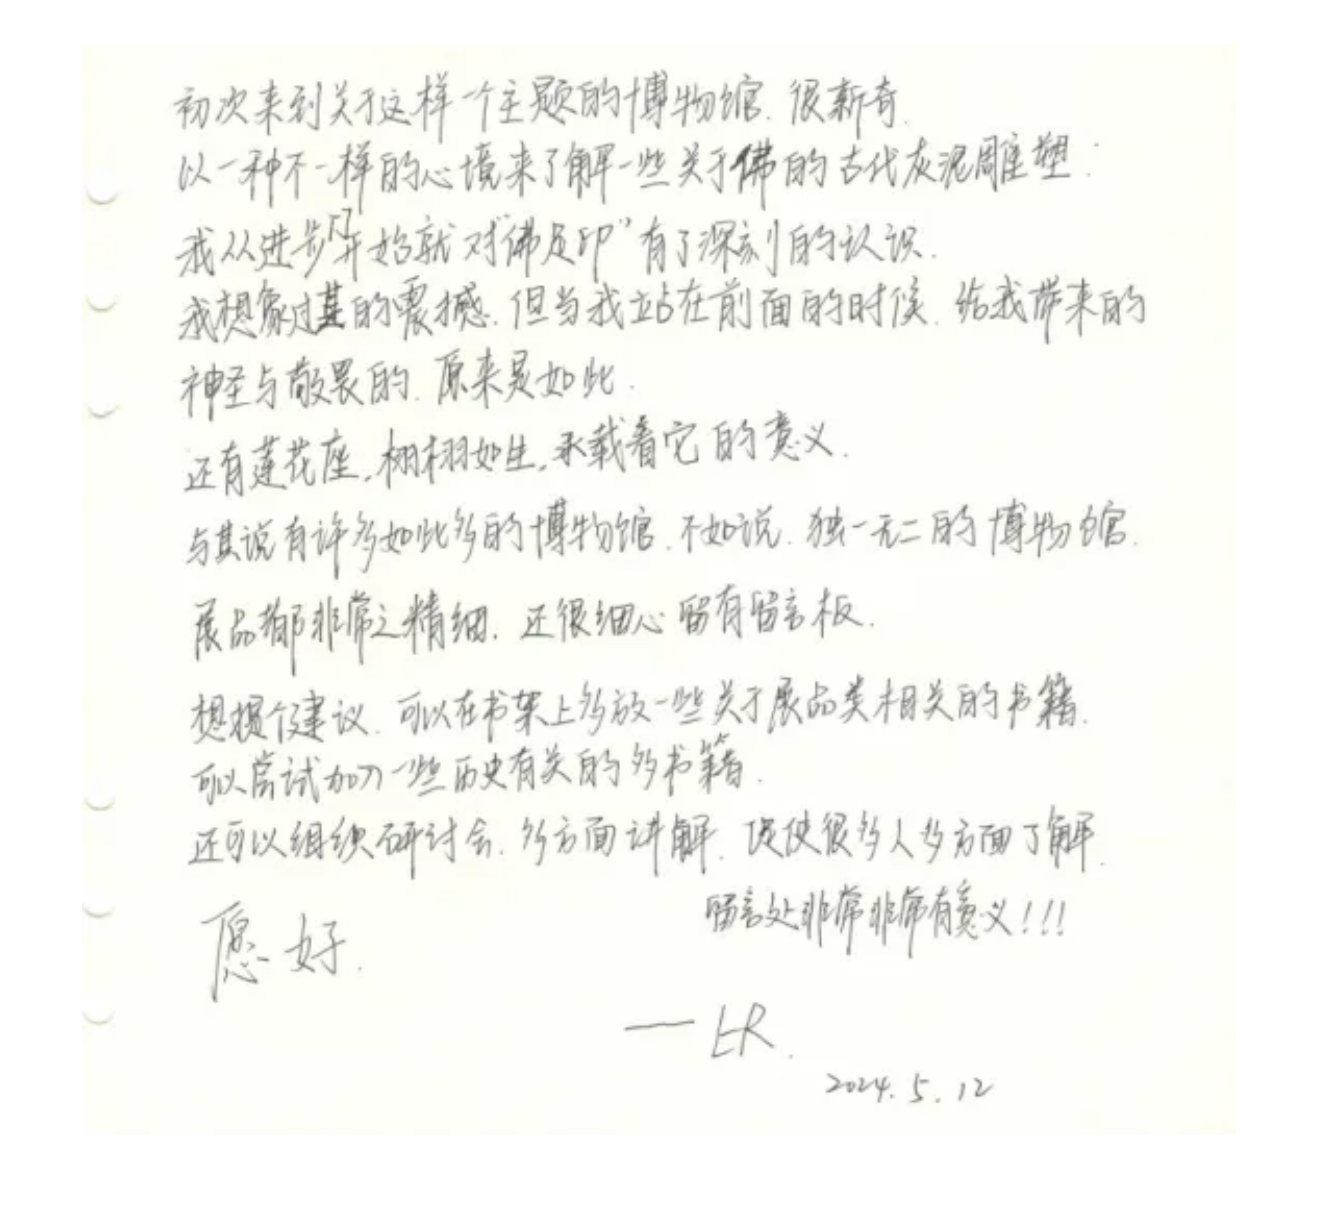 初次来到关于这样一个主题的博物馆.很新奇.
以一种不一样的心境来了解一些关于佛的古代灰泥雕塑:
我从进步门开始就对"佛足印"有了深刻的认识.
我想象过其的震撼.但当我站在前面的时候.给我带来的
神圣与敬畏的.原来是如此.
还有莲花座,栩栩如生,承载着它的意义.
与其说有许多如此多的博物馆.不如说.独一无二的博物馆.
展品都非常之精细.还很细心留有留言板.
想提个建议.可以在书架上多放一些关于展品类相关的书籍.
可以尝试加入一些历史有关的多书籍.
还可以组织研讨会.多方面讲解.促使很多人多方面了解.
留言处非常非常有意义!!!
愿好.
——ER.
2024.5.12